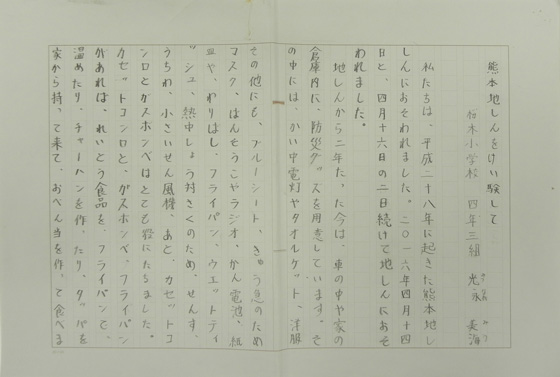 熊本地しんをけい験して
桜木小学校 四年三組 光永 表海
みつ
私たちは、平成二十八年に起きた熊本地し
しんにおそわれました。二〇一六年四月十四
日と、四月十六日の二日続けて地しんにおそ
われました。
地しんから二年たった今は、車の中や家の
倉庫内に、防災グッズを用意しています。そ
の中には、かい中電灯やタオルケット、洋服
その他にも、ブルーシート、きゅう急のため
コスク、ばんそうこやラジオ、かん電池、紙
皿や、わりばし、フライパン、ウエットティ
ッシュ、熱中しょう対さくのため、せんす、
うちわ、小さいせん風機、あと、カセットコ
ンロとガスボンベはとても役にたちました。
カセットコンロと、ガスボンベ、フライパン
があれば、れいとう食品を、フライパンで、
温めたり、チャーハンを作ったり、ナベを
家から持って来て、おべん当を作って食べま